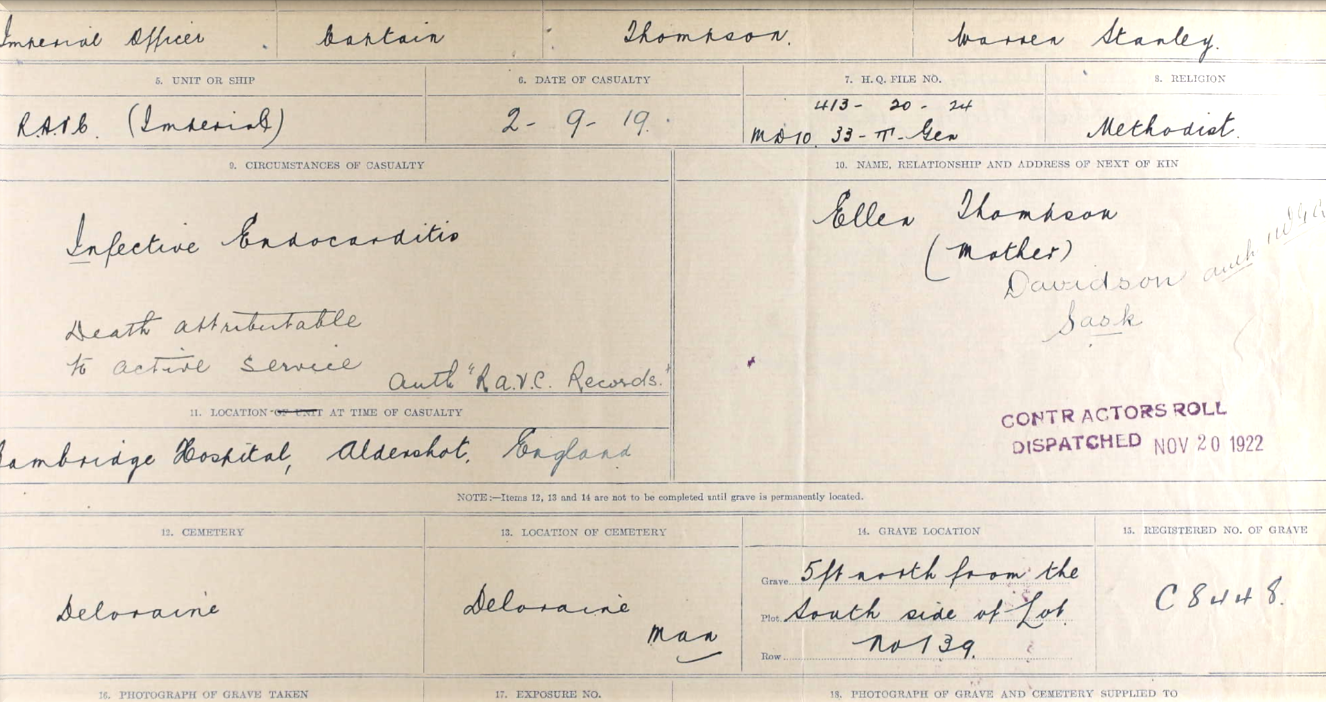 Imperial Officer Captain Thompson. Warren Stanley.
5. UNIT OR SHIP 6. DATE OF CASUALTY 7. H.Q. FILE NO. 8. RELIGION
413 - 20 - 24
(Imperial) 2 - 9 - 19. MD10. 33 - T - Gen Methodist.
9. CIRCUMSTANCES OF CASUALTY
Infective Endocarditis
Death attributable
to active Service
auth "R.A.V.C. Records."
10. NAME, RELATIONSHIP AND ADDRESS OF NEXT OF KIN
Ellen Thompson
(Mother)
Davidson auth
Sask
CONTRACTORS ROLL
DISPATCHED NOV 20 1922
11. LOCATION OF UNIT AT TIME OF CASUALTY
ambridge Hospital, Aldershot, England
NOTE:—Items 12, 13 and 14 are not to be completed until grave is permanently located.
12. CEMETERY 13. LOCATION OF CEMETERY 14. GRAVE LOCATION 15. REGISTERED NO. OF GRAVE
Deloraine
Deloraine
Man
Grave 5ft north from the
Plot South side of Lot
Row No 139.
C 8448.
16. PHOTOGRAPH OF GRAVE TAKEN 17. EXPOSURE NO. 18. PHOTOGRAPH OF GRAVE AND CEMETERY SUPPLIED TO